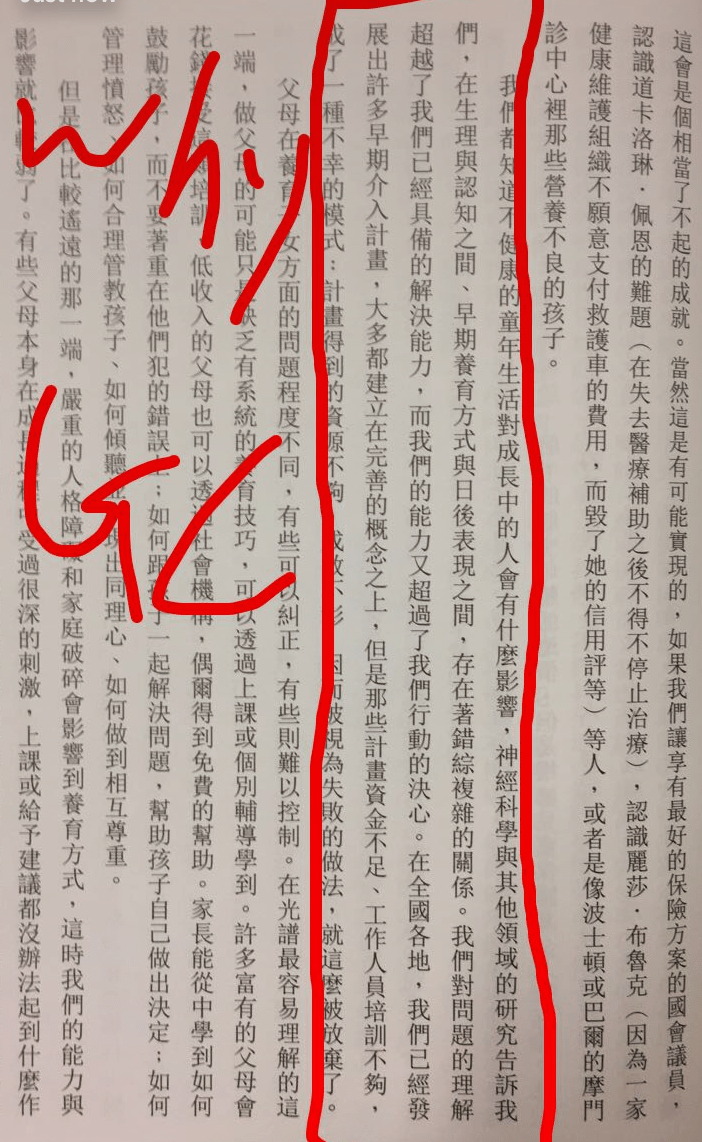 Just now
這會是個相當了不起的成就。當然這是有可能實現的，如果我們讓享有最好的保險方案的國會議員，
認識道卡洛琳．佩恩的難題（在失去醫療補助之後不得不停止治療），認識麗莎．布魯克（因為一家
健康維護組織不願意支付救護車的費用，而毀了她的信用評等）等人，或者是像波士頓或巴爾的摩門
診中心裡那些營養不良的孩子。
我們都知道不健康的童年生活對成長中的人會有什麼影響，神經科學與其他領域的研究告訴我
們，在生理與認知之間、早期養育方式與日後表現之間，存在著錯綜複雜的關係。我們對問題的理解
超越了我們已經具備的解決能力，而我們的能力又超過了我們行動的決心。在全國各地，我們已經發
展出許多早期介入計畫，大多都建立在完善的概念之上，但是那些計畫資金不足、工作人員培訓不夠，
成了一種不幸的模式：計畫得到的資源不夠 成效不彰 因而被視為失敗的做法，就這麼被放棄了。
父母在養育子女方面的問題程度不同，有些可以糾正，有些則難以控制。在光譜最容易理解的這
一端，做父母的可能只是缺乏有系統的養育技巧，可以透過上課或個別輔導學到。許多富有的父母會
花錢接受這種培訓 低收入的父母也可以透過社會機構，偶爾得到免費的幫助。家長能從中學到如何
鼓勵孩子，而不要著重在他們犯的錯誤上；如何跟孩子一起解決問題，幫助孩子自己做出決定；如何
管理憤怒、如何合理管教孩子、如何傾聽並 現出同理心、如何做到相互尊重。
但是在比較遙遠的那一端，嚴重的人格障礙和家庭破碎會影響到養育方式，這時我們的能力與
影響就 較弱了。有些父母本身在成長過程中受過很深的刺激，上課或給予建議都沒辦法起到什麼作
Why
GC